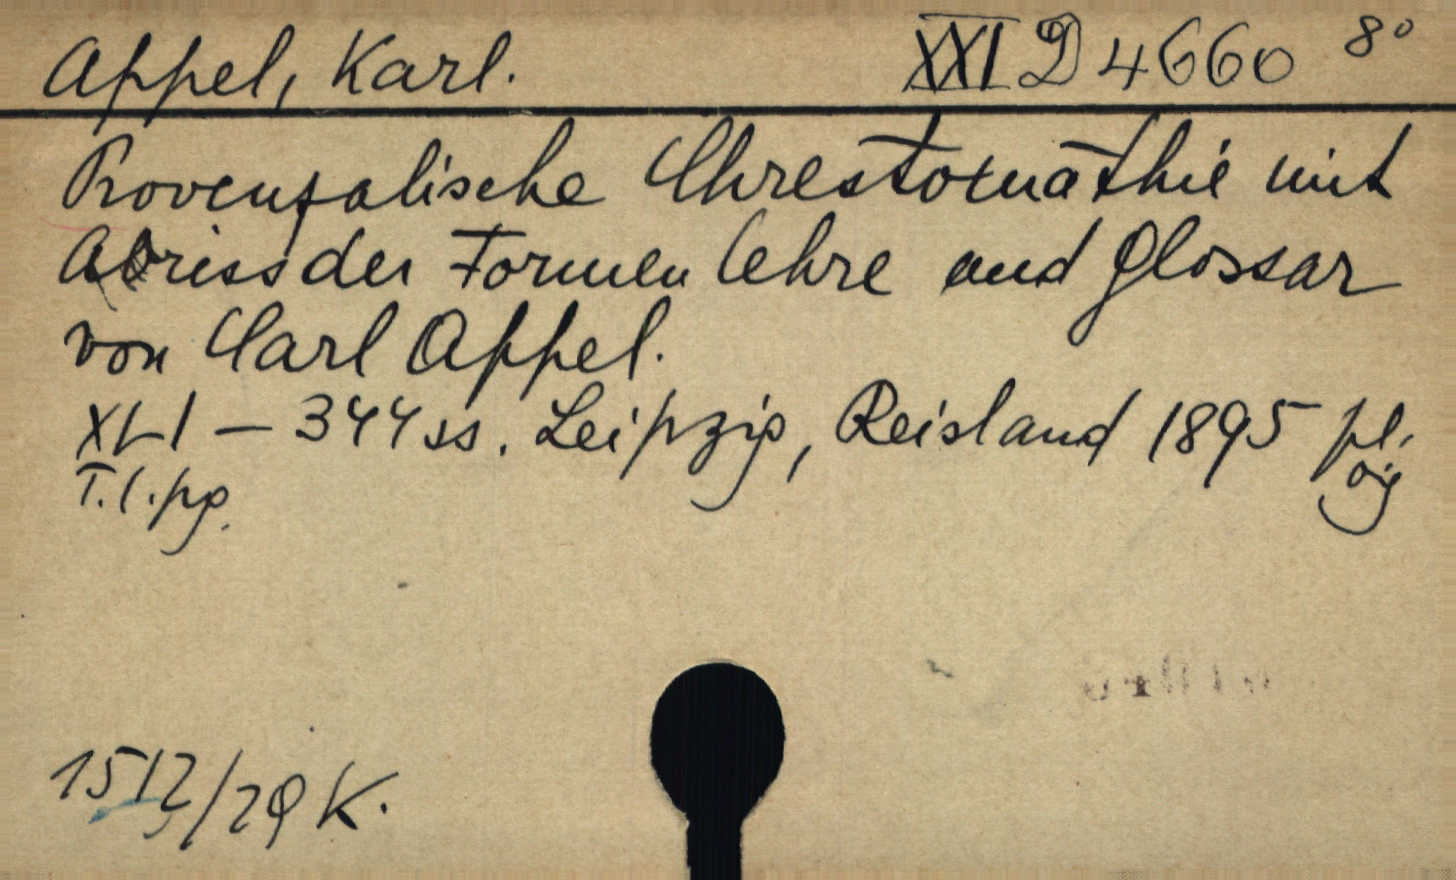 Appel, Karl. XXI D 4660 8°
Provenzalische Chrestomathie mit
Abriss der Formenlehre und Glossar
von Carl Appel.
XLI – 344 ss. Leipzig, Reisland 1895 pł.
T. l. pg.
1512/29 K.